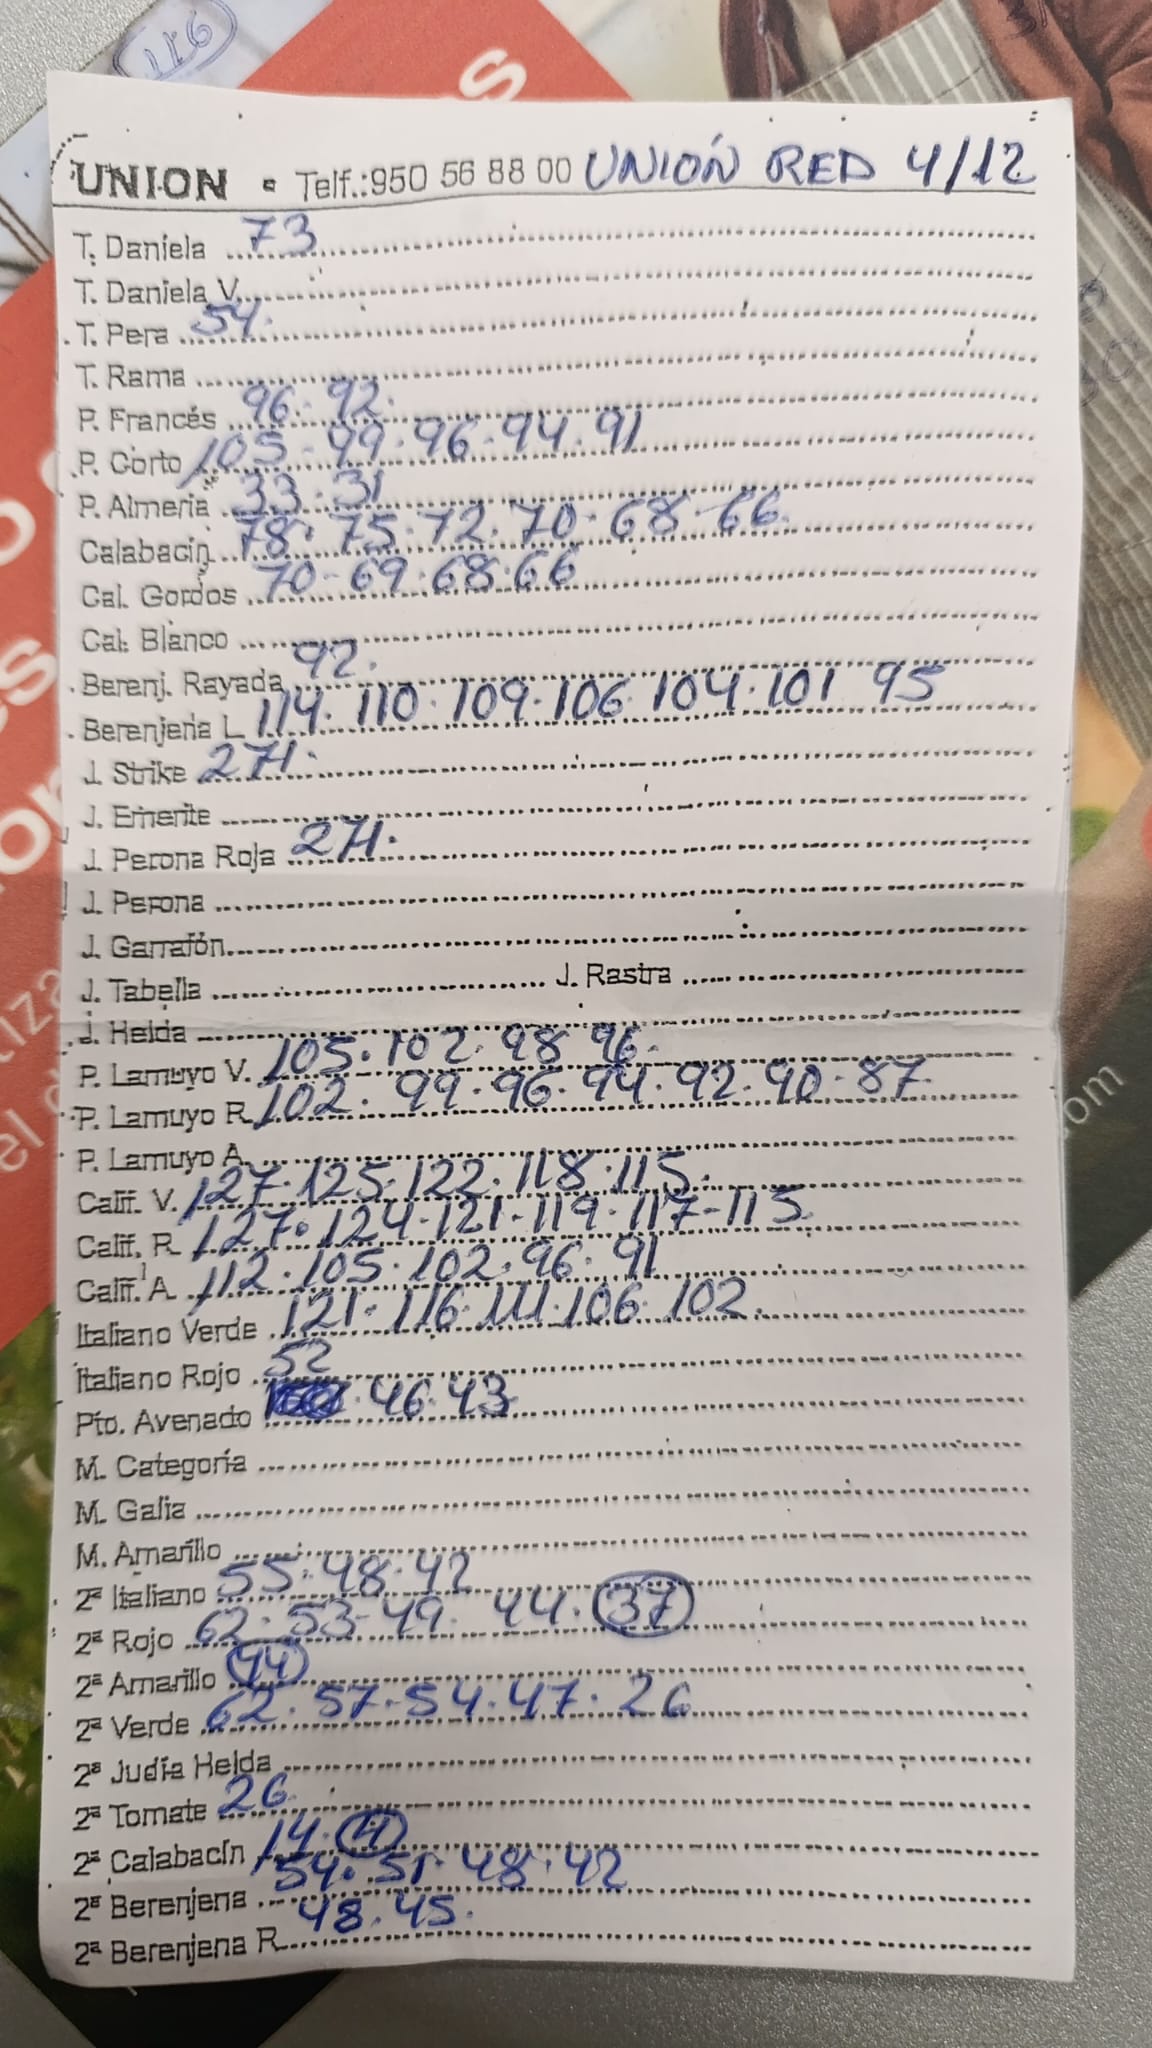 UNION • Telf.:950 56 88 00 UNIÓN RED 4/12
T. Daniela 73
T. Daniela V.
T. Pera 54.
T. Rama
P. Francés 96. 92.
P. Corto 105 - 99. 96. 94. 91
P. Almeria 33. 31
Calabacín 78. 75. 72. 70. 68. 66
Cal. Gordos 70 - 69. 68. 66
Cal. Blanco
Berenj. Rayada 92.
Berenjena L 114. 110. 109. 106. 104. 101 95
J. Strike 271.
J. Emerite
J. Perona Roja 271.
J. Perona
J. Garrafón
J. Tabella J. Rastra
J. Helda
P. Lamuyo V. 105. 102. 98 96.
P. Lamuyo R 102. 99. 96. 94. 92. 90. 87.
P. Lamuyo A.
Calif. V. 127. 125. 122. 118. 115.
Calif. R 127. 124-121-119. 117-115
Calif. A 112. 105. 102. 96. 91
Italiano Verde 121. 116. 111. 106. 102.
Italiano Rojo 52
Pto. Avenado 46. 43
M. Categoría
M. Galia
M. Amarillo
2ª Italiano 55. 48. 42
2ª Rojo 62. 53-49. 44. 37
2ª Amarillo 44
2ª Verde 62. 57. 54. 47. 26
2ª Judía Helda
2ª Tomate 26.
2ª Calabacín 14.
2ª Berenjena 54. 51 48. 42
2ª Berenjena R 48. 45.